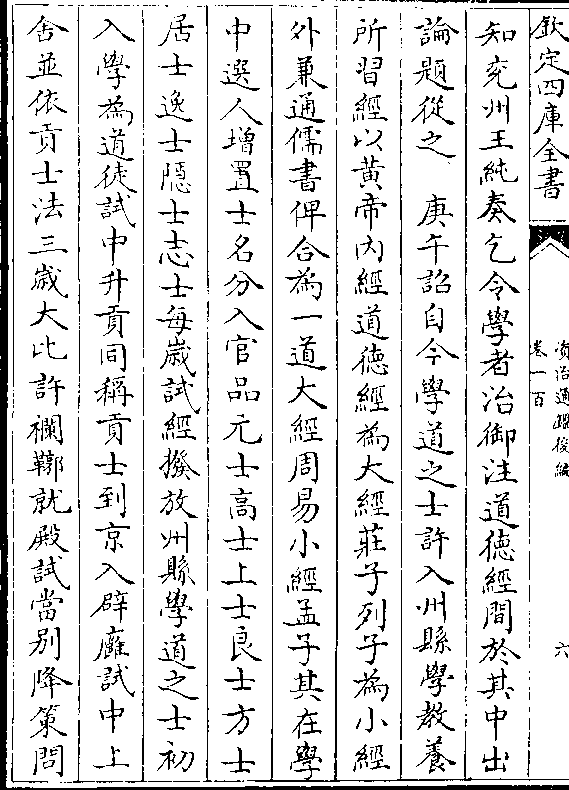 欽定四庫全書
資治通鑑後編
卷一百
六
知兖州王純奏乞令學者治御注道德經間於其中出
論題從之　庚午詔自今學道之士許入州縣學教養
所習經以黄帝內經道德經為大經莊子列子為小經
外兼通儒書俾合為一道大經周易小經孟子其在學
中選人增置士名分入官品元士高士上士良士方士
居士逸士隱士志士每歲試經撥放州縣學道之士初
入學為道徒試中升貢同稱貢士到京入辟廱試中上
舍並依貢士法三歲大比許襴鞹就殿試當别降策問